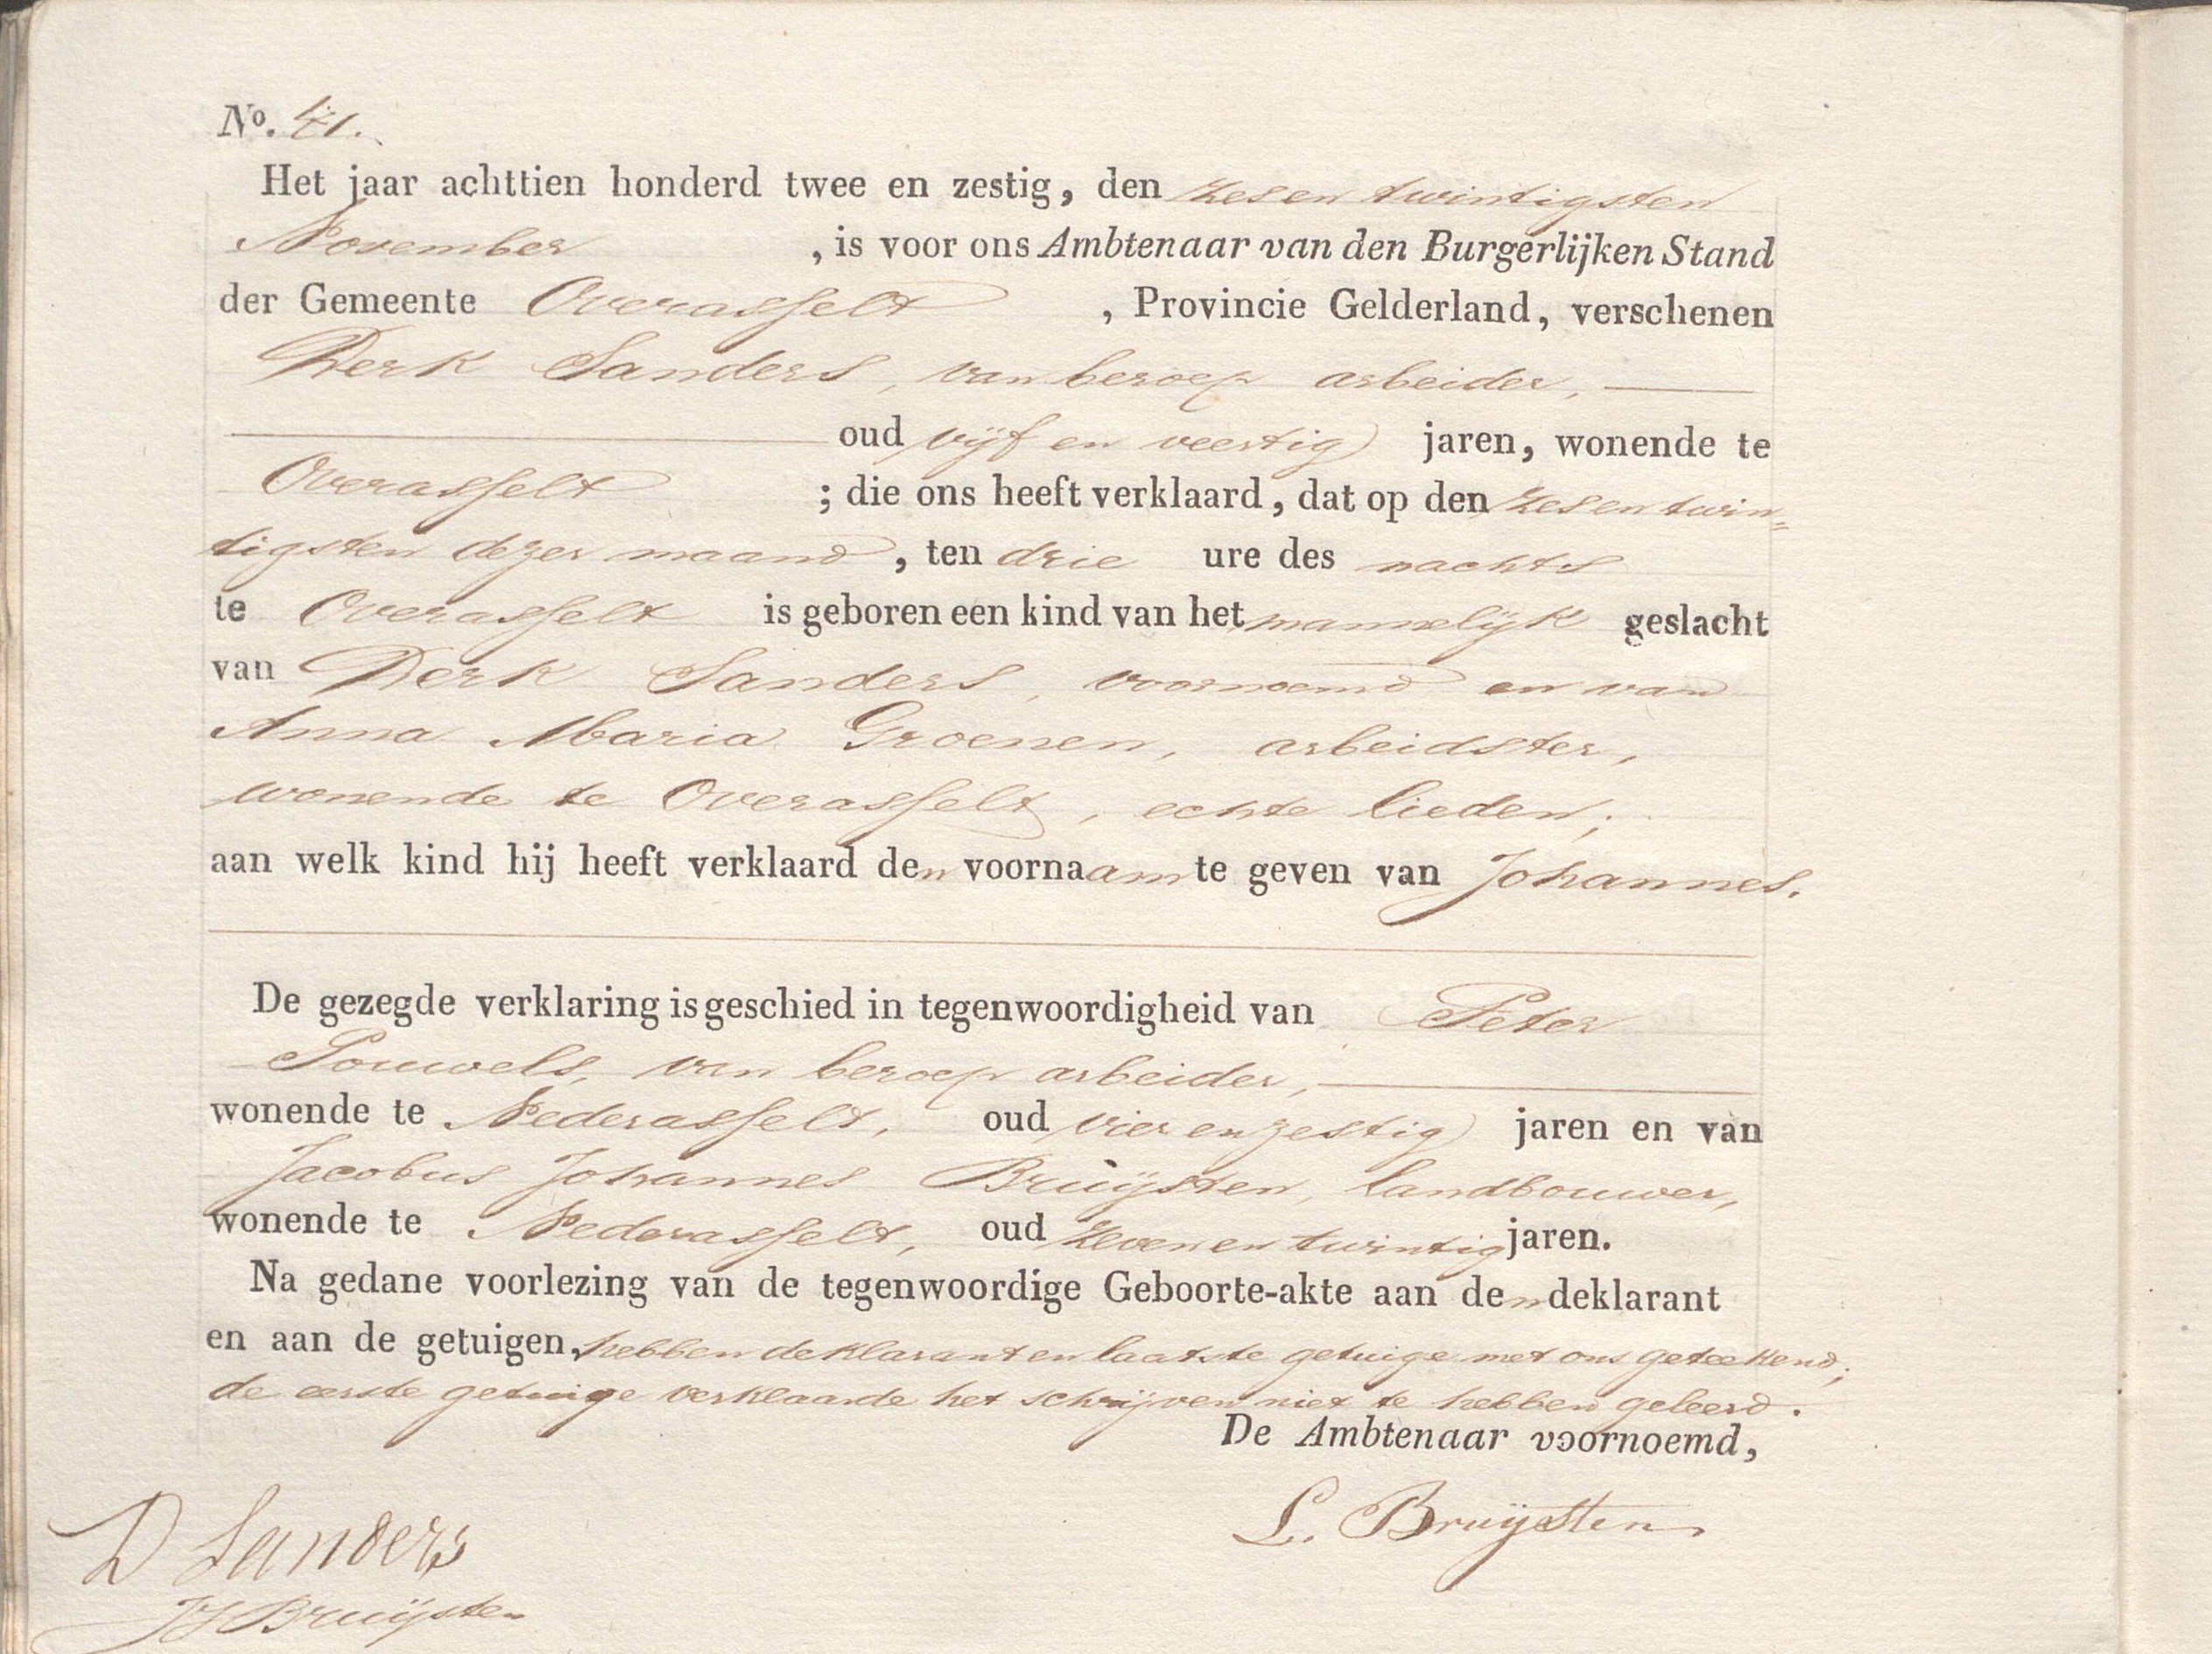 No. 41.
Het jaar achttien honderd twee en zestig, den zes en twintigsten
November , is voor ons Ambtenaar van den Burgerlijken Stand
der Gemeente Overasselt , Provincie Gelderland, verschenen
Derk Sanders, van beroep arbeider,
oud vijf en veertig jaren, wonende te
Overasselt ; die ons heeft verklaard, dat op den zes en twin=
tigsten dezer maand , ten drie ure des nachts
te Overasselt is geboren een kind van het mannelijk geslacht
van Derk Sanders, voornoemd en van
Anna Maria Groenen, arbeidster,
wonende te Overasselt, echte lieden;
aan welk kind hij heeft verklaard den voornaam te geven van Johannes.
De gezegde verklaring is geschied in tegenwoordigheid van Peter
Pouwels, van beroep arbeider,
wonende te Nederasselt, oud vier en zestig jaren en van
Jacobus Johannes Bruijsten, landbouwer,
wonende te Nederasselt, oud zeven en twintig jaren.
Na gedane voorlezing van de tegenwoordige Geboorte-akte aan den deklarant
en aan de getuigen, hebben deklarant en laatste getuige met ons geteekend;
de eerste getuige verklaarde het schrijven niet te hebben geleerd.
De Ambtenaar voornoemd,
L. Bruijsten
D Sanders
JJ Bruijsten